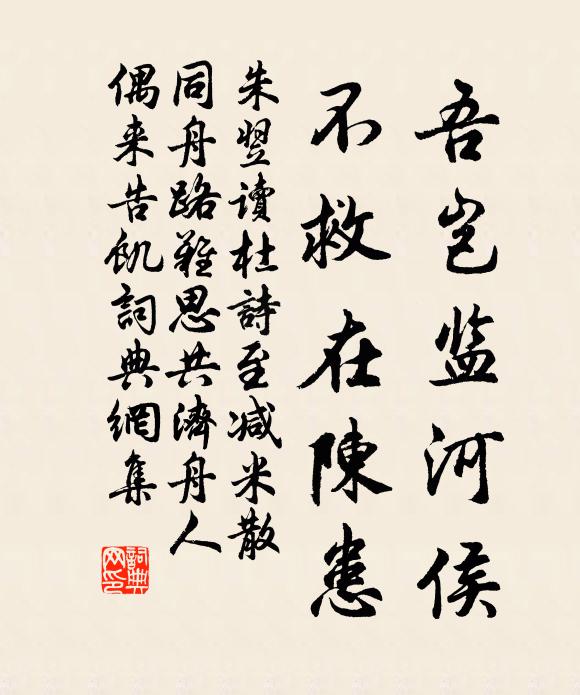 吾岂监河侯
不救在陳恚
朱翌讀杜詩至减米散
同舟路難思共濟舟人
偶来告飢詞典網集
詞典网印